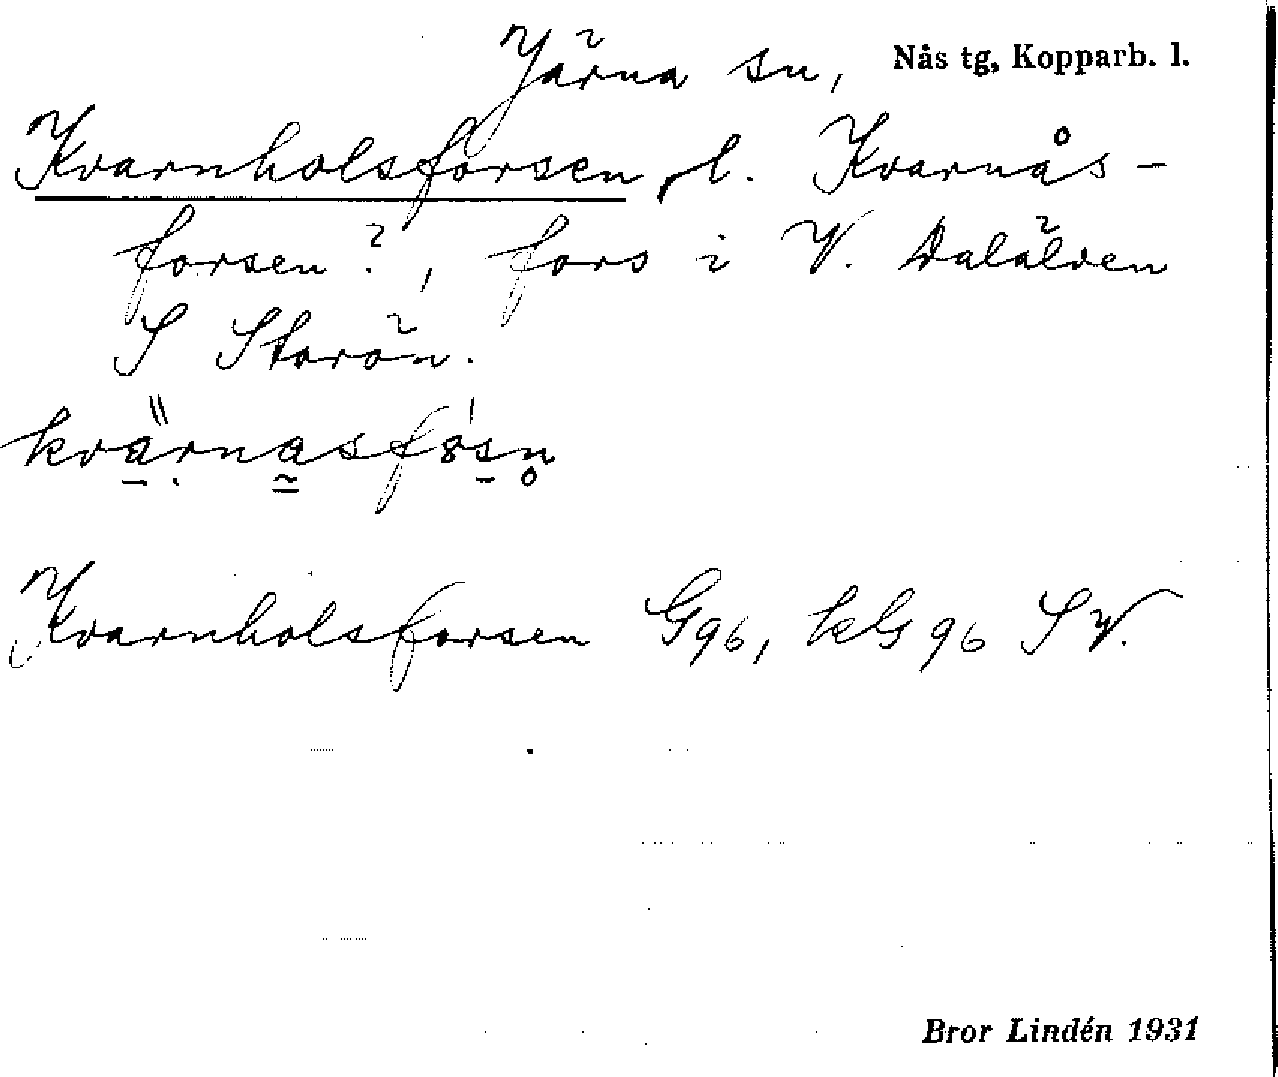 Järna sn, Nås tg, Kopparb. l.
Kvarnholsforsen, l. Kvarnås-
forsen?, fors i V. Dalälven
S Storön.
kvä̱rṇasfo̍s̱n̥
Kvarnholsforsen G96, kG 96 SV.
Bror Lindén 1931